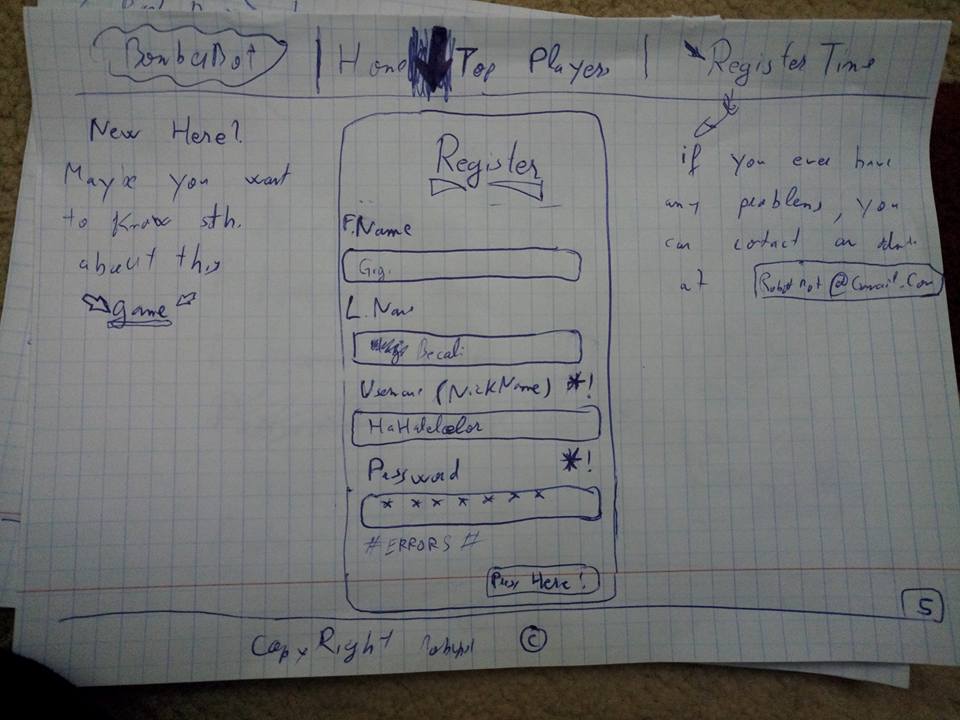 BombaBot
Home
Top Players
Register Time
New Here?
Maybe you want
to know sth.
about this
game
Register
F.Name
Gigi
L.Name
Becali
Username (NickName) *!
Password *!
* * * * * * *
# ERRORS #
Press Here!
if you ever have
any problems, you
can contact an admin
at
@Gmail.Com
5
CopyRight ©